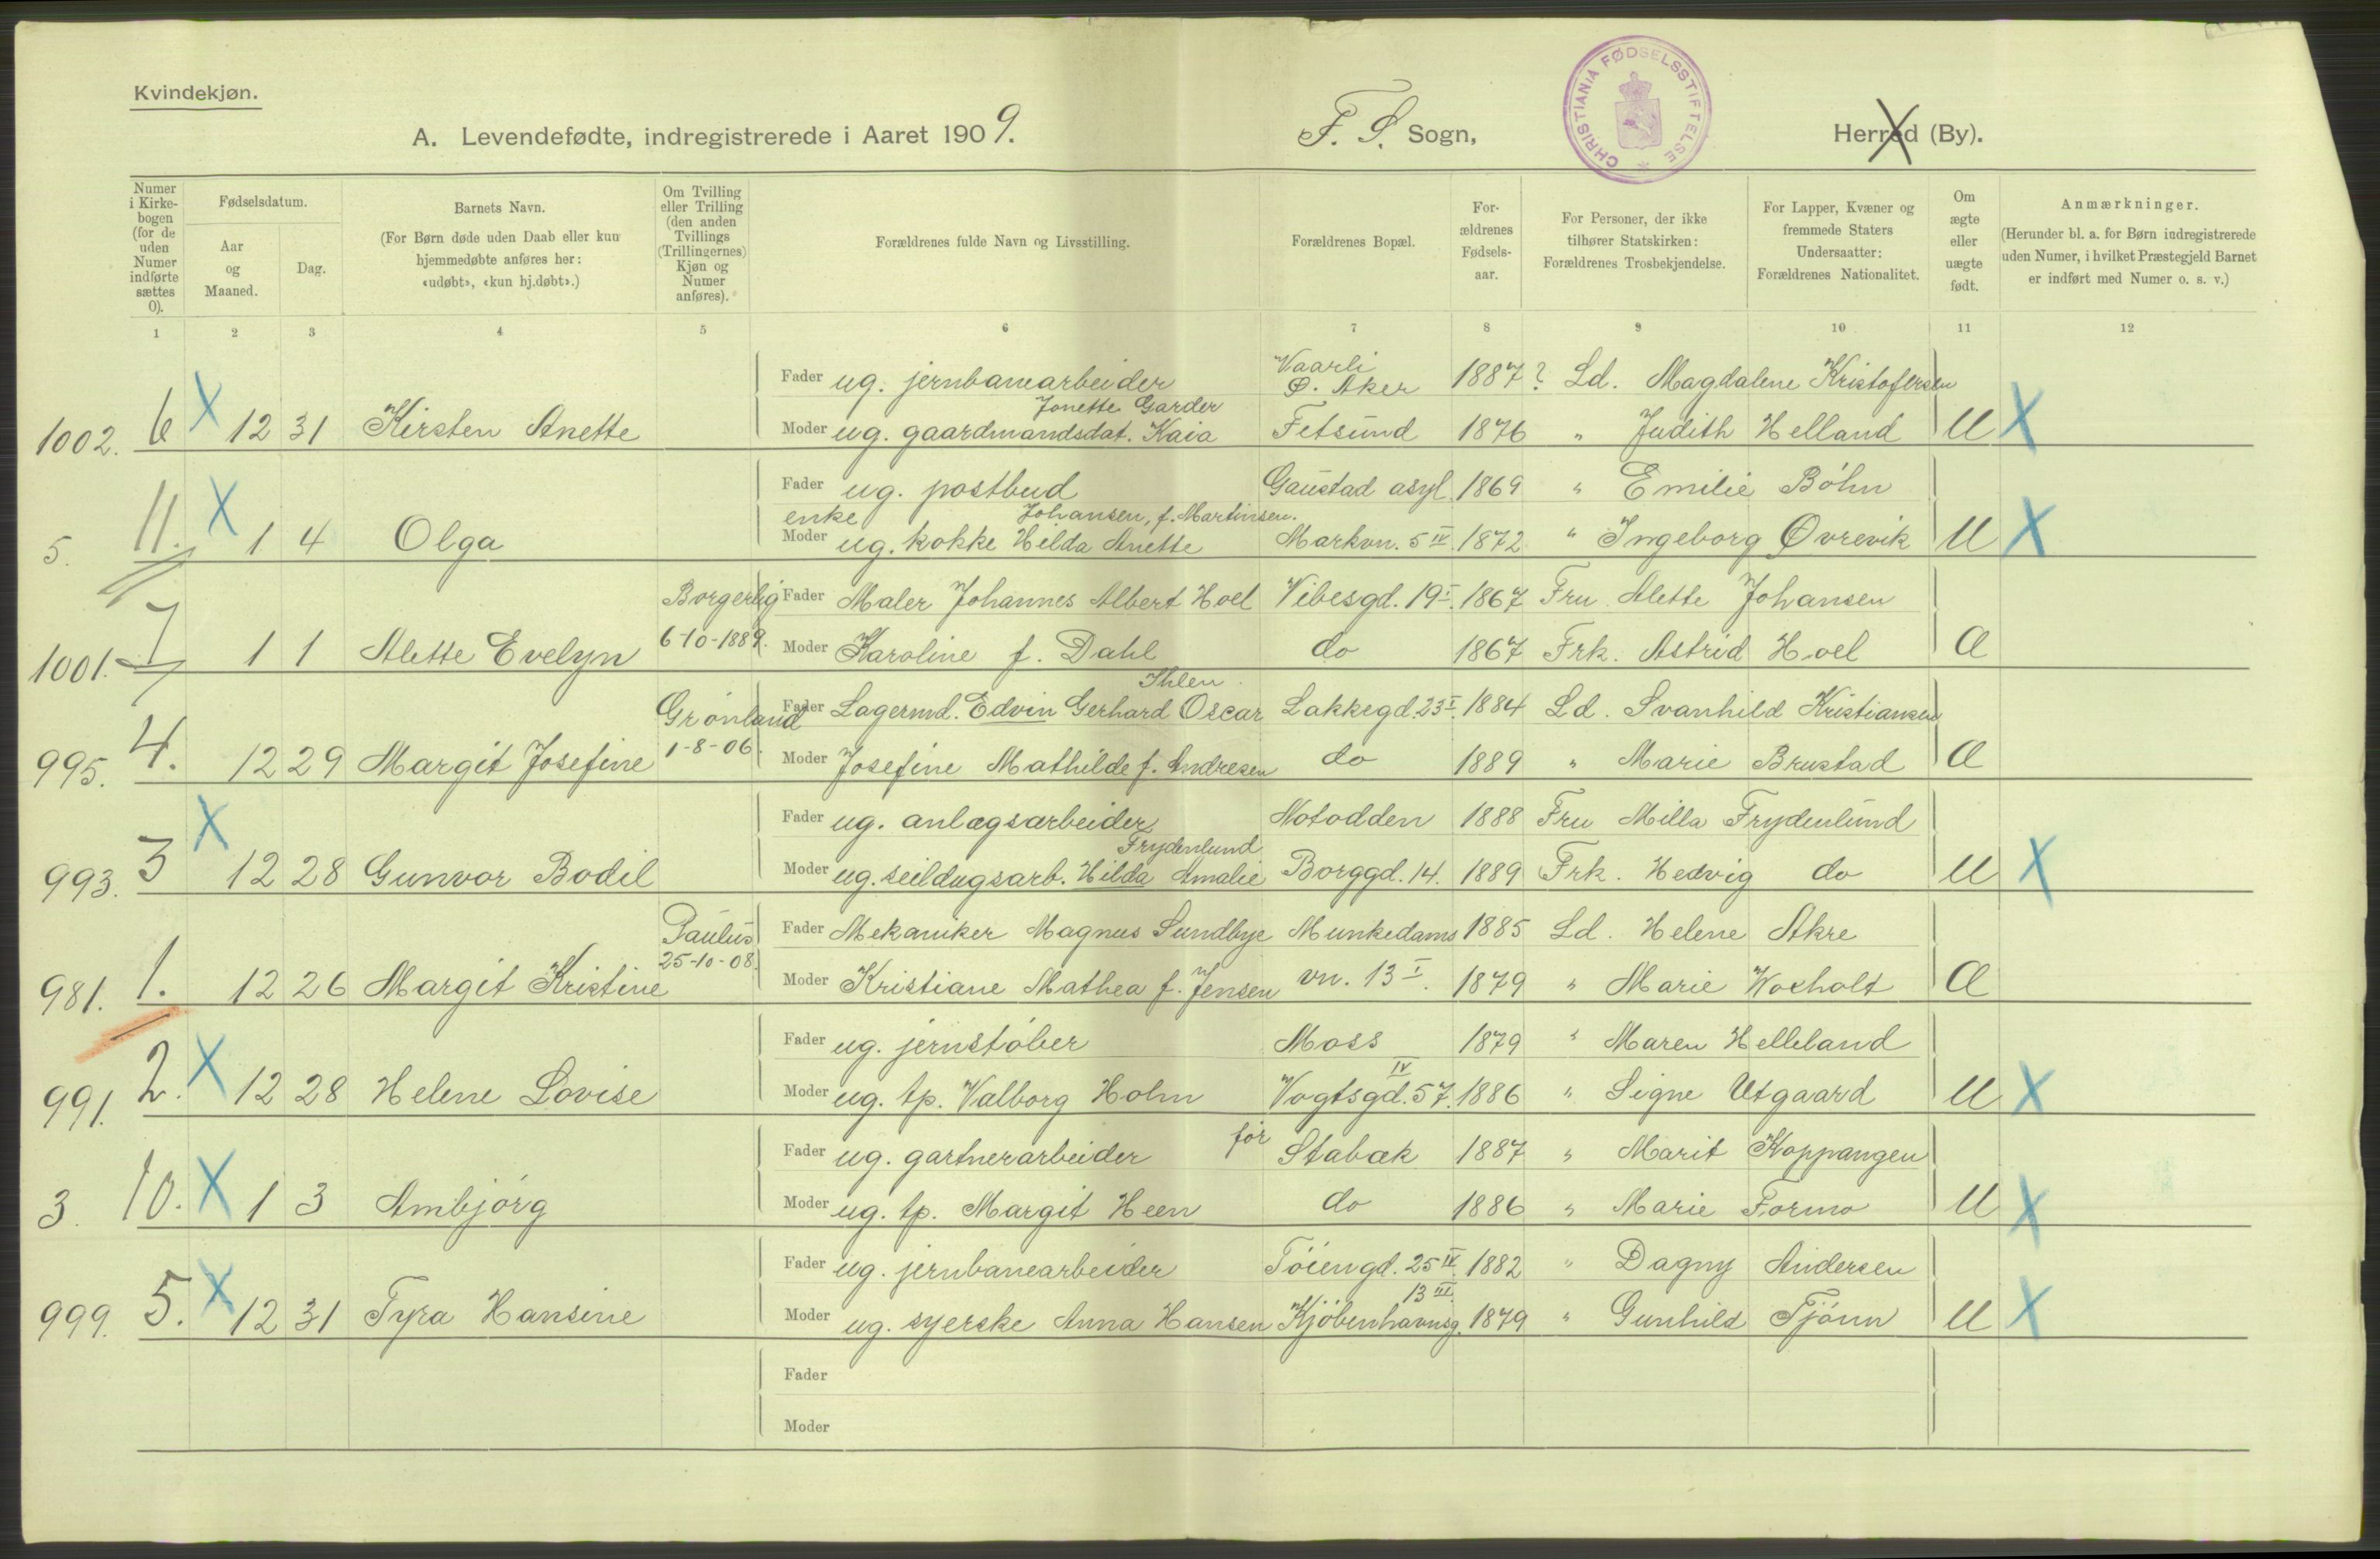 Kvindekjøn.
A. Levendefødte, indregistrerede i Aaret 1909.
F. S. Sogn,
CHRISTIANIA FØDSELSSTIFTELSE
Herred (By).
Numer i Kirke-bogen (for de uden Numer indførte sættes 0).
Fødselsdatum.
Aar og Maaned.
Dag.
Barnets Navn.
(For Børn døde uden Daab eller kun hjemmedøbte anføres her: «udøbt», «kun hj.døbt».)
Om Tvilling eller Trilling (den anden Tvillings (Trillingernes) Kjøn og Numer anføres).
Forældrenes fulde Navn og Livsstilling.
Forældrenes Bopæl.
For-ældrenes Fødsels-aar.
For Personer, der ikke tilhører Statskirken: Forældrenes Trosbekjendelse.
For Lapper, Kvæner og fremmede Staters Undersaatter: Forældrenes Nationalitet.
Om ægte eller uægte født.
Anmærkninger.
(Herunder bl. a. for Børn indregistrerede uden Numer, i hvilket Præstegjeld Barnet er indført med Numer o. s. v.)
1 2 3 4 5 6 7 8 9 10 11 12
Vaarli
Fader ug. jernbanearbeider Ø. Aker 1887? Ld. Magdalene Kristofersen
Jonette Garder
1002. 6 X 12 31 Kirsten Anette Moder ug. gaardmandsdat. Kaia Fetsund 1876 " Judith Helland U X
Fader ug. postbud Gaustad asyl. 1869 " Emilie Böhn
enke Johansen, f. Martinsen.
5. 11. X 1 4 Olga Moder ug. kokke Hilda Anette Markvn. 5 IV. 1872 " Ingeborg Øvrevik U X
Borgerlig Fader Maler Johannes Albert Hoel Vibesgd. 19 I. 1867 Fru Alette Johansen
1001. 7 1 1 Alette Evelyn 6-10-1889. Moder Karoline f. Dahl do 1867 Frk. Astrid Hoel Æ
Ihlen
Grönland Fader Lagermd. Edvin Gerhard Oscar Lakkegd. 23 I. 1884 Ld. Svanhild Kristiansen
995. 4. 12 29 Margit Josefine 1-8-06. Moder Josefine Mathilde f. Andresen do 1889 " Marie Brustad Æ
Fader ug. anlægsarbeider Notodden 1888 Fru Milla Frydenlund
Frydenlund
993. 3 X 12 28 Gunvor Bodil Moder ug. seildugsarb. Hilda Amalie Borggd. 14. 1889 Frk. Hedvig do U X
Paulus Fader Mekaniker Magnus Sundbye Munkedams 1885 Ld. Helene Akre
981. 1. 12 26 Margit Kristine 25-10-08. Moder Kristiane Mathea f. Jensen vn. 13 I. 1879 " Marie Woxholt Æ
Fader ug. jernstöber Moss 1879 " Maren Helleland
IV
991. 2. X 12 28 Helene Lovise Moder ug. tp. Valborg Holm Vogtsgd. 57. 1886 " Signe Utgaard U X
Fader ug. gartnerarbeider för Stabæk 1887 " Marit Koppangen
3. 10. X 1 3 Ambjörg Moder ug. tp. Margit Heen do 1886 " Marie Formo U X
Fader ug. jernbanearbeider Töiengd. 25 IV. 1882 " Dagny Andersen
13 III.
999. 5. X 12 31 Tyra Hansine Moder ug. syerske Anna Hansen Kjöbenhavnsg. 1879 " Gunhild Tjönn U X
Fader
Moder